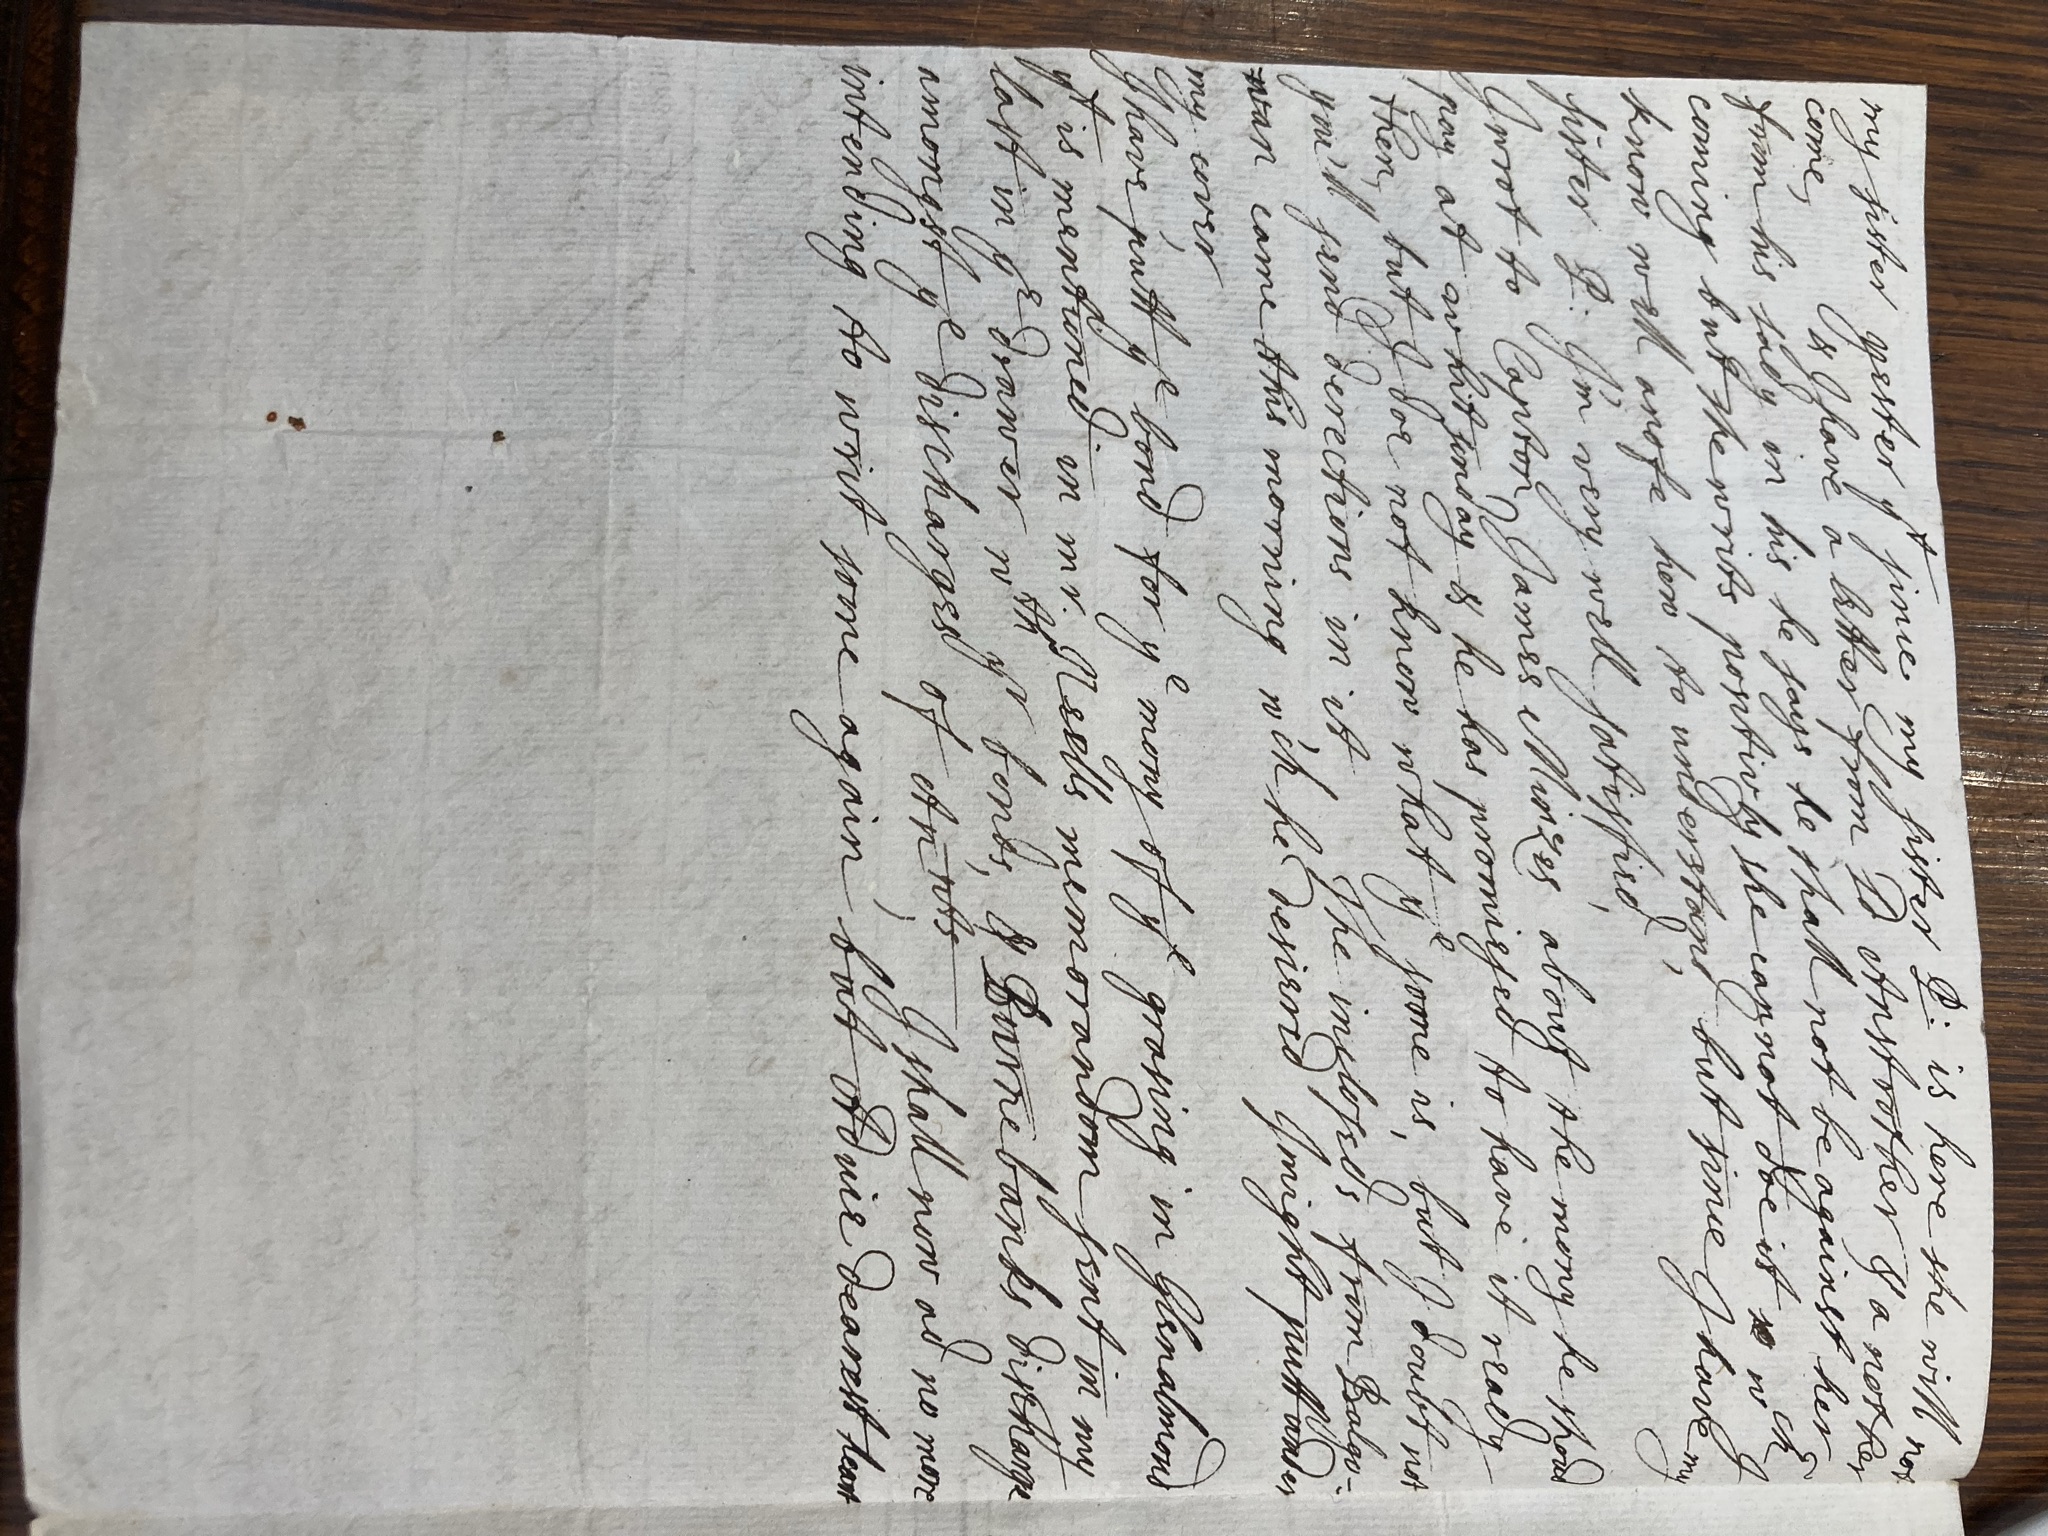 my sister yester yt since my sister P: is here she will not
come, & I have a letter from Ld Anstrother & a nother
from his lady in his he says he shall not be against her
coming but she writs positivly she cannot doe it wch I
know well anofe how to understand, but since I have my
sister P: I'm very well satisfied,
I wrot to Capton James Minzes about the mony he shoud
pay at whitsonday & he has promiesed to have it ready
then, but I doe not know what ye some is, but I doubt not
you'll send derections in it, The incloseds from Balgo-
wan came this morning wch he desiered I might putt under
my cover,
I have putt ye bond for ye mony of ye grasing in Glenalmond
yt is mentioned in mr. Neells memorandom sent in my
last in ye drawer wth yr bonds, & Burnebanks discharge
amongst ye discharges of Annts, I shall now ad no more
intending to writ some again but Aduie dearest heart